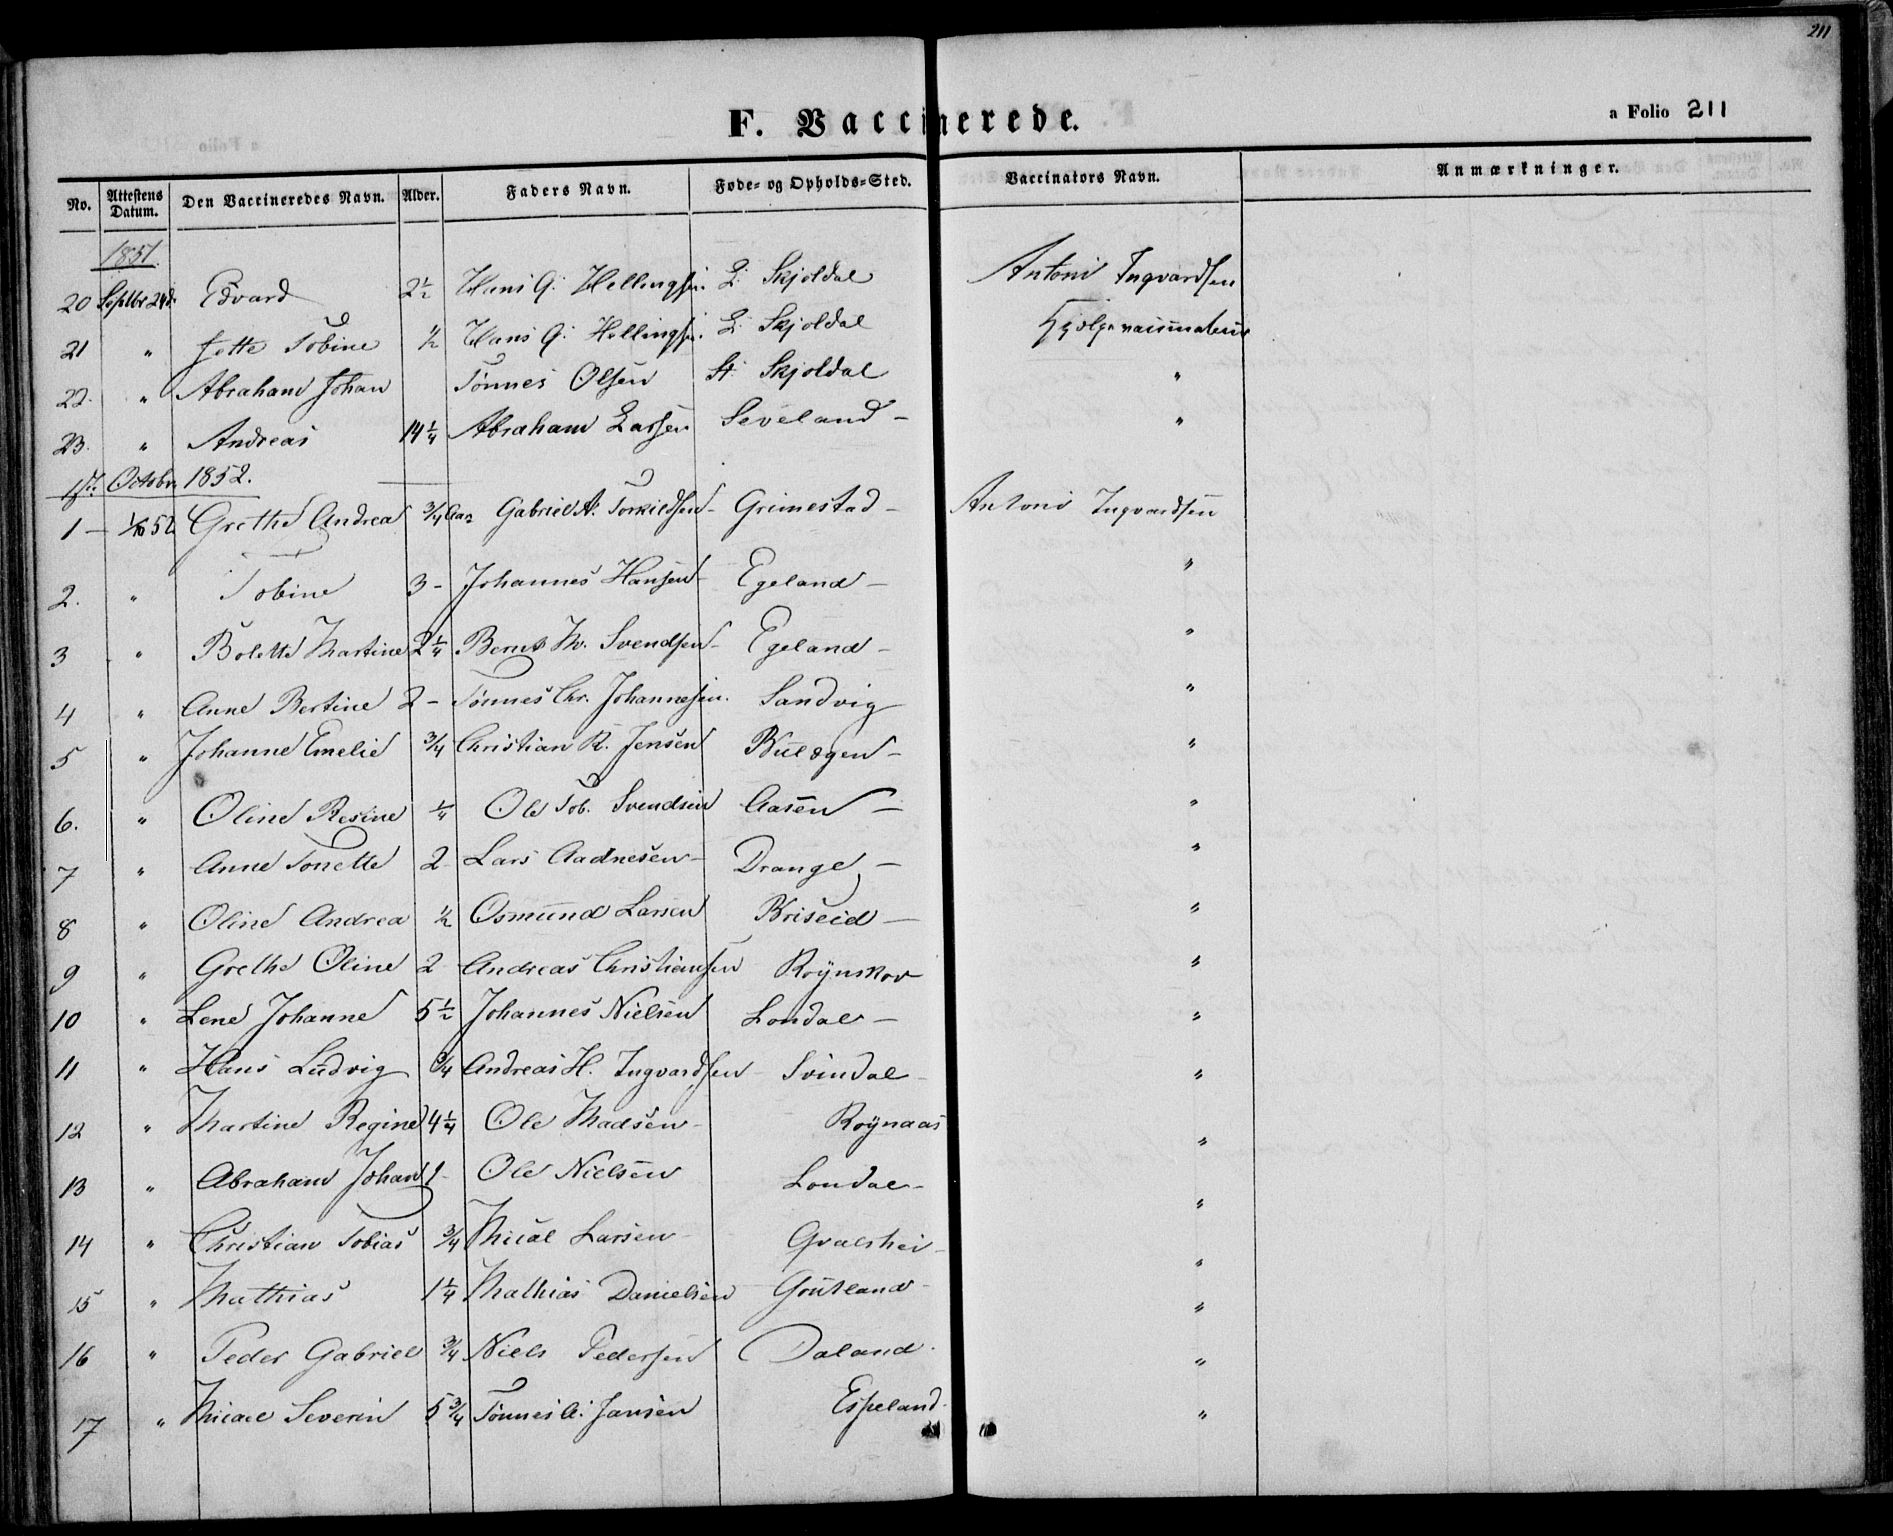 211
F. Vaccinerede.
a Folio 211
No. Attestens Datum. Den Vaccineredes Navn. Alder. Faders Navn. Føde- og Opholds-Sted. Vaccinators Navn. Anmærkninger.
1851.
20 Septbr 24d. Edvard 2½ Hans G. Hellingsen. L: Skjoldal Antoni Ingvardsen
21 " Jette Tobine ½ Hans G: Hellingsen. L: Skjoldal
22. " Abraham Johan Tønnes Olsen St: Skjoldal "
23. " Andreas 14¼ Abraham Larsen Seveland – "
Octobr. 1852.
1 – 1/10 52 Grethe Andrea ¾ Aar Gabriel A. Torkildsen – Grimestad – Antoni Ingvardsen
2. " Tobine 3 – Johannes Hansen – Egeland – "
3 " Bolette Martine 2¼ Bernt M. Svendsen – Egeland – "
4 " Anne Bertine 2 – Tønnes Chr. Johannesen. Sandvig "
5 " Johanne Emelie ¾ Christian R. Jensen Buløgen – "
6. " Oline Resine ¼ Ole Tob. Svendsen Aasen – "
7 " Anne Tonette 2 Lars Aadnesen – Drange – "
8 " Oline Andrea ½ Osmund Larsen Briseid – "
9 " Grethe Oline 2 Andreas Christiansen Røynskov "
10 " Lene Johanne 5½ Johannes Nielsen Londal – "
11 " Hans Ludvig ¾ Andreas H. Ingvardsen – Svindal – "
12 " Martine Regine 4¼ Ole Madsen – Røynaas "
13 " Abraham Johan 1 – Ole Nielsen Londal – "
14 " Christian Tobias ¾ Mical Larsen – Gvalshei – "
15 " Mathias 1¼ Mathias Danielsen Goutland – "
16 " Peder Gabriel ¾ Niels Pedersen Daland. "
17 " Micael Severin 5¾ Tønnes A: Jansen Espeland. "